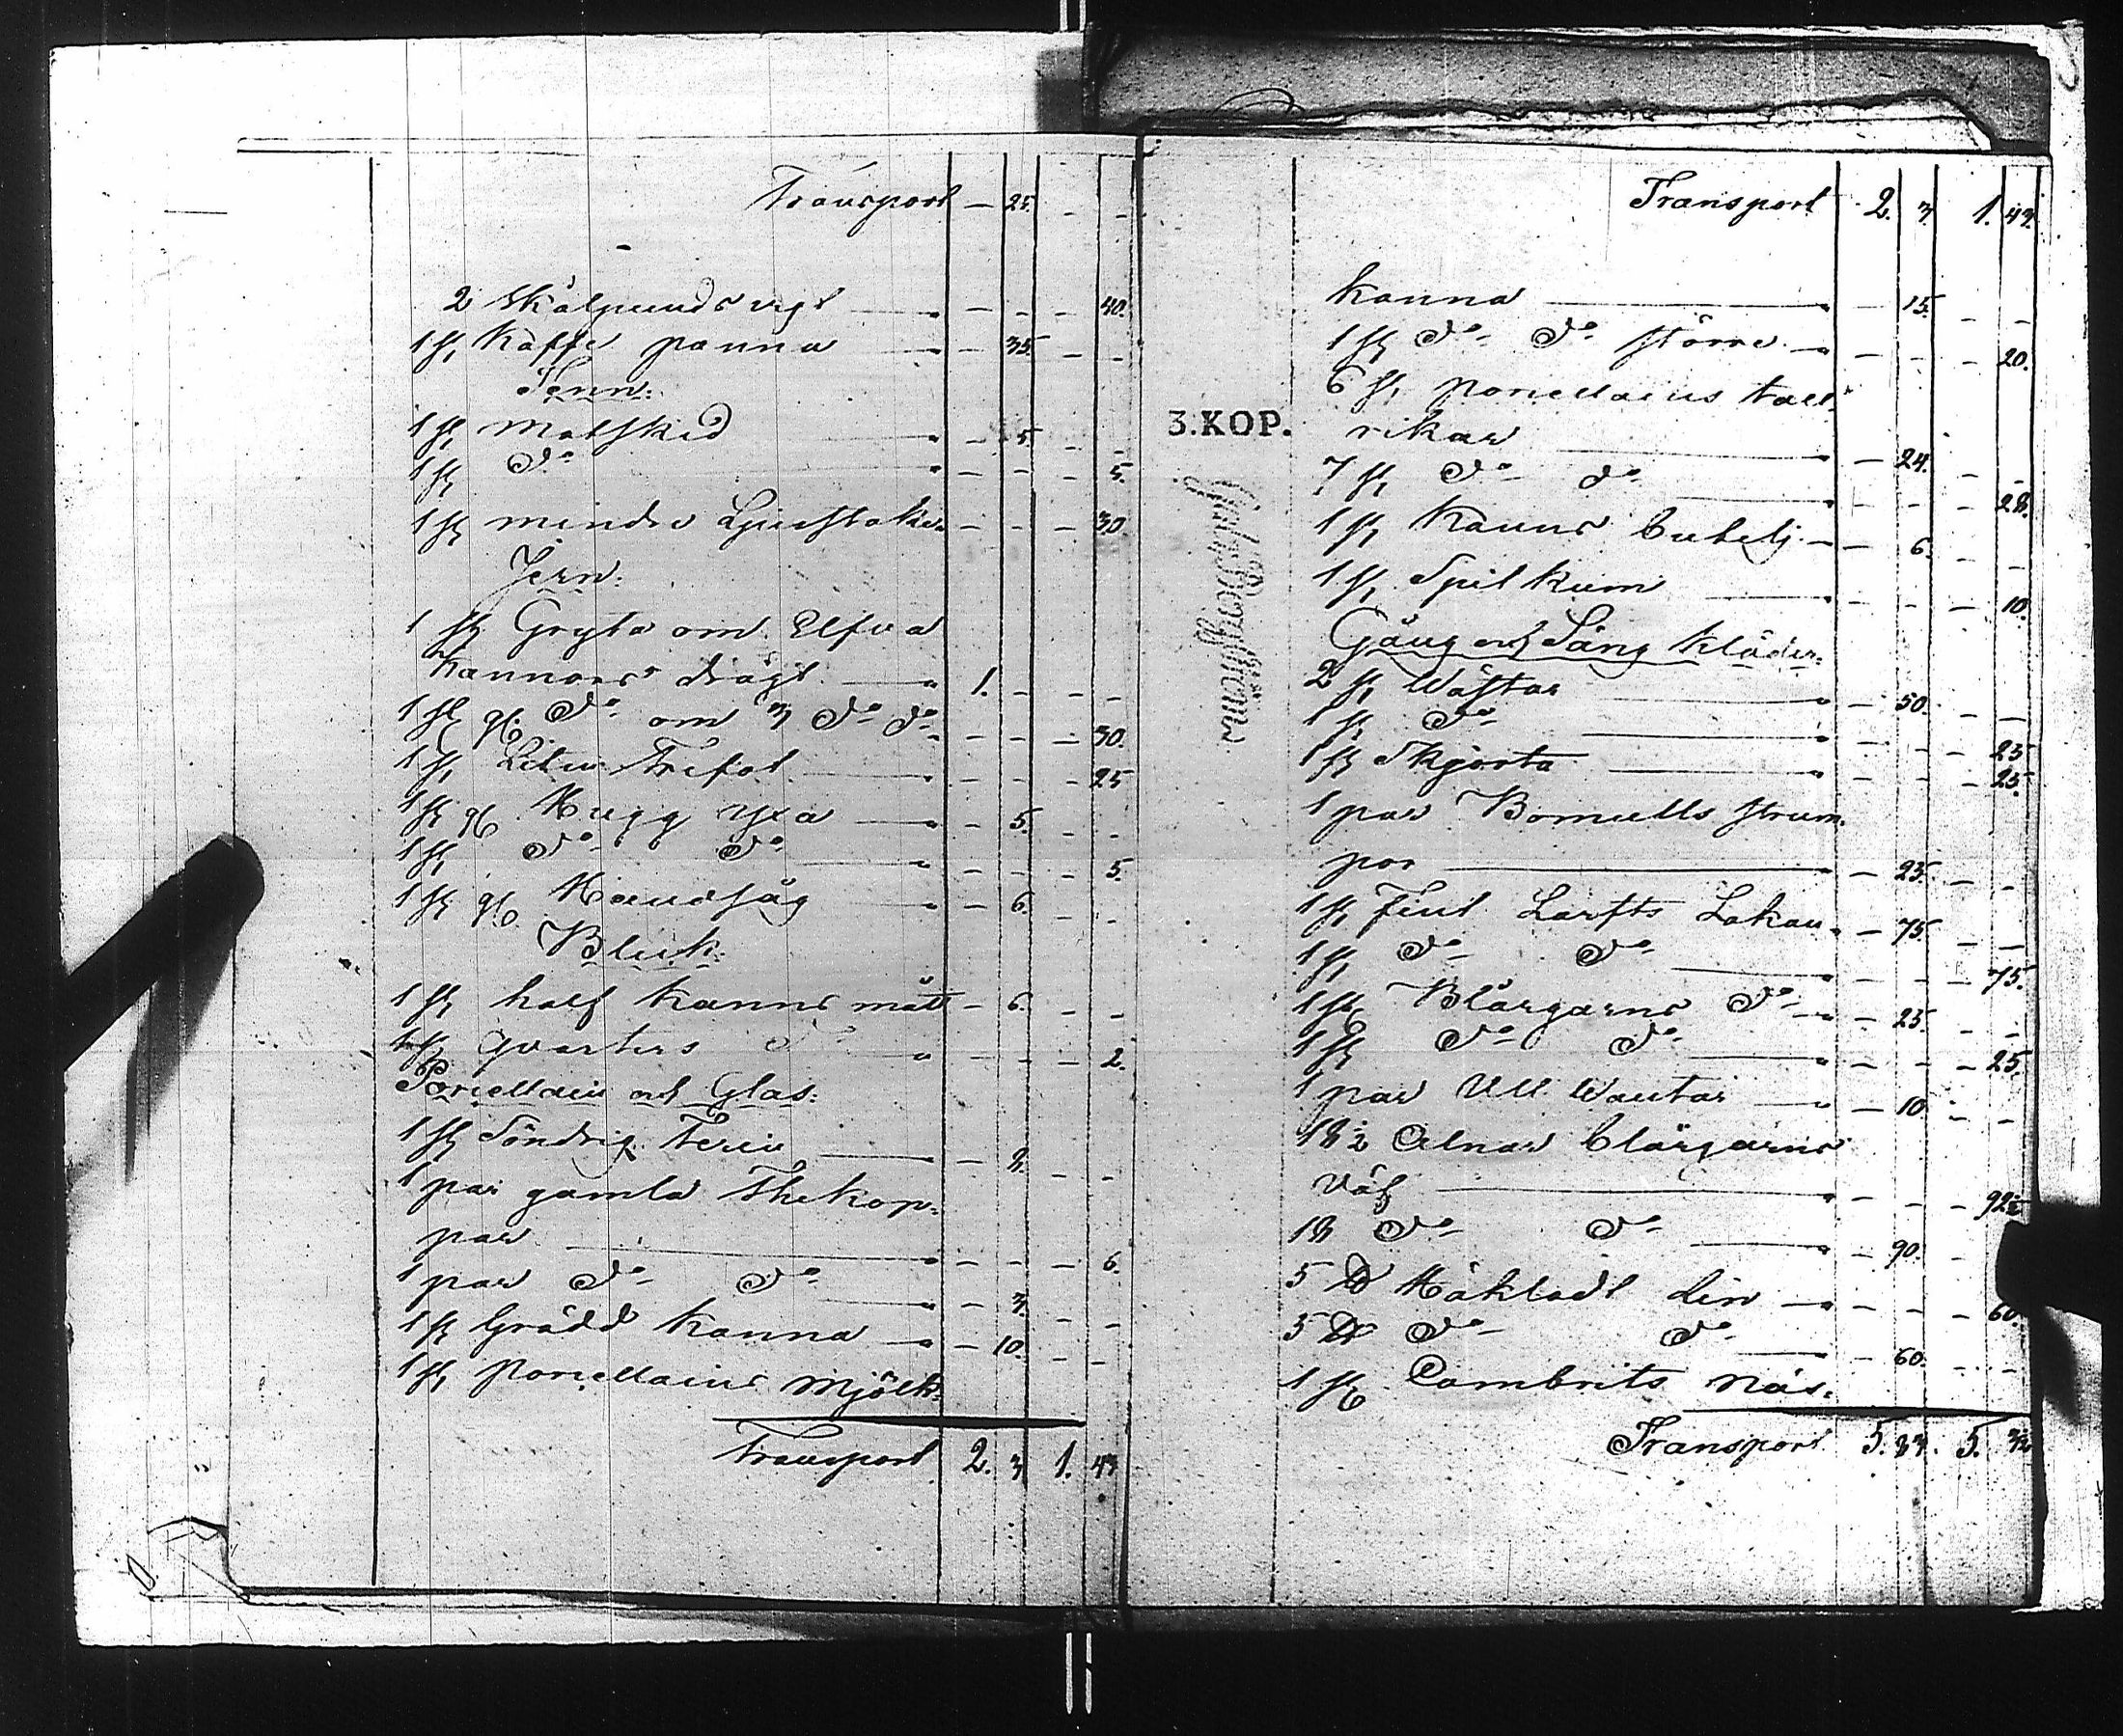 Transport — 25. — —
2 Skålpunds vigt — — — 40.
1 st, Kaffe panna — 35. — —
Tenn:
1 st, Matsked — 5. — —
1 st D:o — — — 5.
1 st mindre Ljusstake — — — 30.
Jern:
1 st Gryta om Elfva
Kannors drägt 1. — — —
1 st gl: D:o om 3 D:o d:o — — — 30.
1 st, Liten Trefot — — — 25
1 st gl Hugg yxa — 5. — —
1 st D:o D:o — — — 5.
1 st gl Handsåg — 6. — —
Bleck:
1 st half Kanns mått — 6. — —
1 st qvarters D:o — — — 2.
Porcellain och Glas:
1 st Söndrig Terin — 2. — —
1 par gamla Thekop-
par — — — 6.
1 par D:o D:o — 3. — —
1 st Grädd Kanna — 10. — —
1 st, Porcellains Mjölk-
Transport 2. 3 1. 43
Transport 2. 3 1. 43.
Kanna — 15. — —
1 st D:o D:o större — — — 20.
6 st, Porcellains tall-
3.KOP.
rikar — 24. — —
7 st, D:o d:o — — — 28.
1 st, Kanns butelj — 6. — —
1 st, Spilkum — — — 10.
Gång och Säng kläder:
2 st, Wästar — 50. — —
1 st, D:o — — — 25
1 st Skjorta — — — 25.
1 par Bomulls strum-
por — 25. — —
1 st, fint Larfts Lakan — 75. — —
1 st, D:o D:o — — — 75.
1 st Blårgarns D:o — 25. — —
1 st D:o D:o — — — 25.
1 par Ull Wantar — 10 — —
18 ½ Alnar blårgarns
väf — — — 92½
18 D:o D:o — 90. — —
5 ℔ Häkladt Lin — — — 60.
5 ℔ D:o D:o — 60. — —
1 st Cambrits näs-
Transport 5. 83. 5. 3½